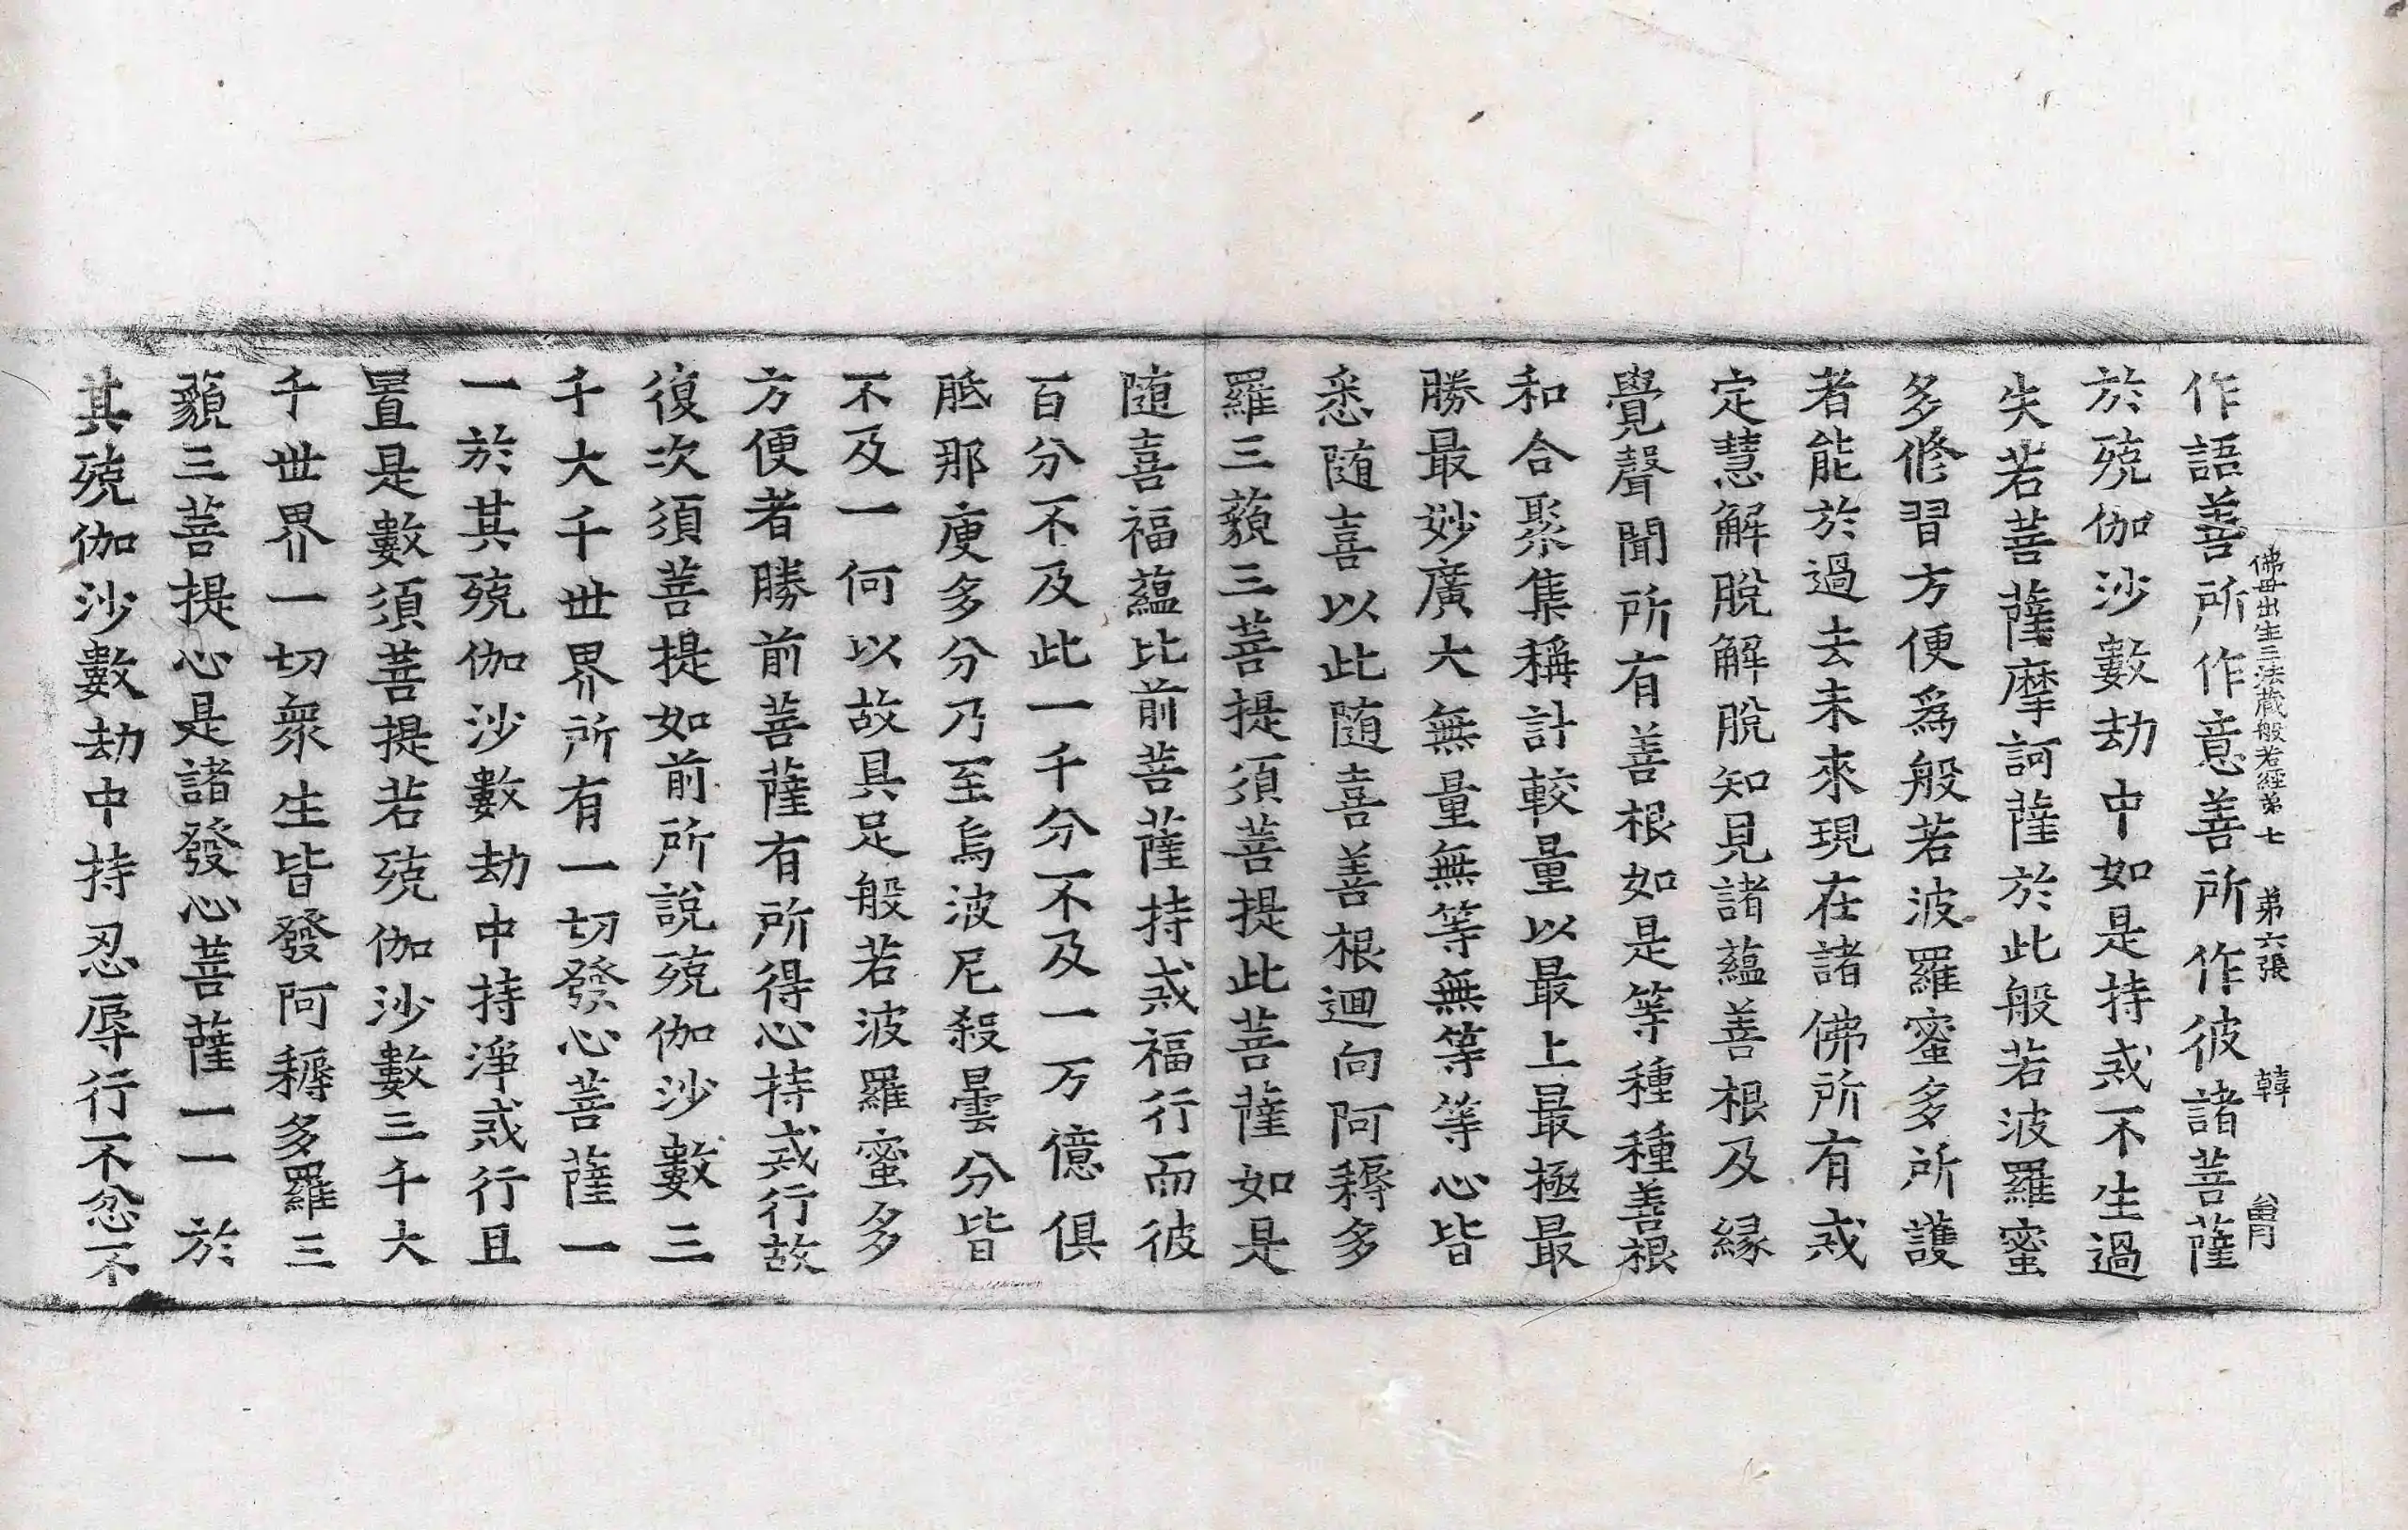 作語善所作意善所作彼諸菩薩
佛母出生三法藏般若經第七 第六張 韓
於殑伽沙數劫中如是持戒不生過
失若菩薩摩訶薩於此般若波羅蜜
多修習方便爲般若波羅蜜多所護
者能於過去未來現在諸佛所有戒
定慧解脫解脫知見諸蘊善根及緣
覺聲聞所有善根如是等種種善根
和合聚集稱計較量以最上最極最
勝最妙廣大無量無等無等等心皆
悉隨喜以此隨喜善根迴向阿耨多
羅三藐三菩提須菩提此菩薩如是
隨喜福蘊比前菩薩持戒福行而彼
百分不及此一千分不及一万億俱
胝那庾多分乃至烏波尼殺曇分皆
不及一何以故具足般若波羅蜜多
方便者勝前菩薩有所得心持戒行故
復次須菩提如前所說殑伽沙數三
千大千世界所有一切發心菩薩一
一於其殑伽沙數劫中持淨戒行且
置是數須菩提若殑伽沙數三千大
千世界一切衆生皆發阿耨多羅三
藐三菩提心是諸發心菩薩一一於
其殑伽沙數劫中持忍辱行不忿不